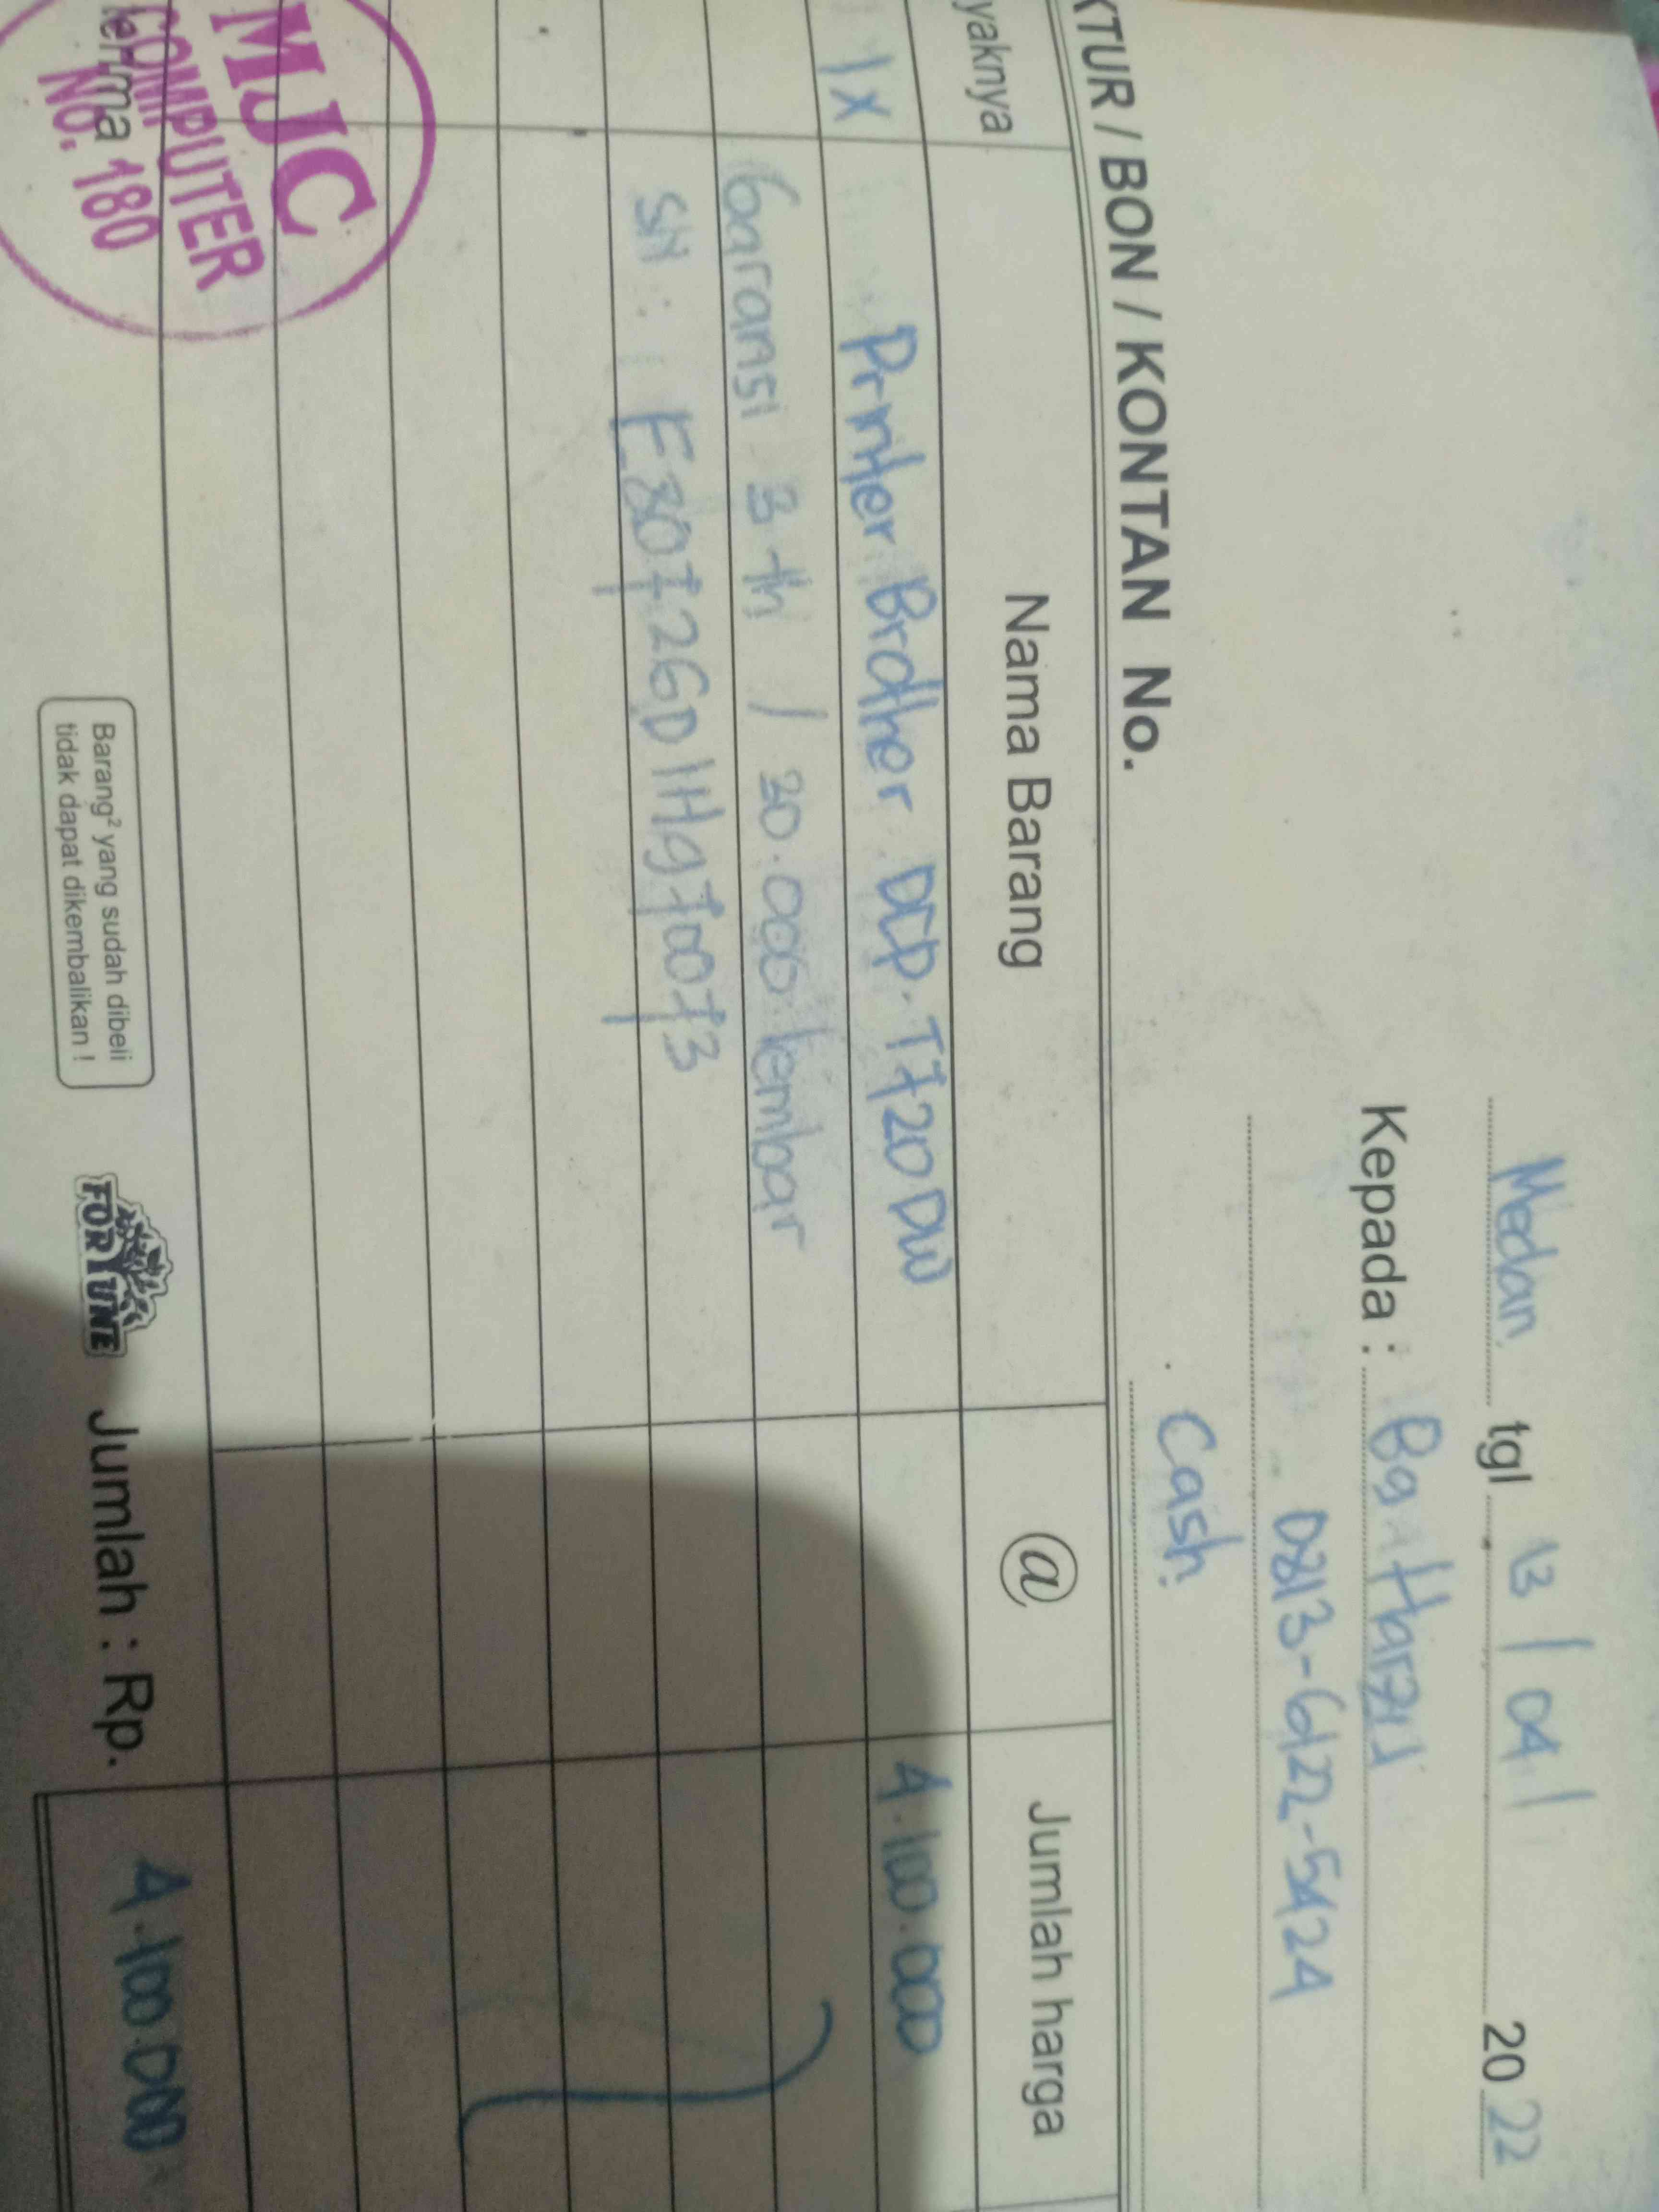 Medan tgl 13 / 04 / 2022
Kepada : Bg
0813-6122-5424
Cash
KTUR / BON / KONTAN No.
yaknya Nama Barang @ Jumlah harga
1 x Printer Brother DCP-T720DW 4.100.000
Garansi 3 th / 30.000 lembar
SN :
4.100.000
Jumlah : Rp.
Barang² yang sudah dibeli
tidak dapat dikembalikan !
FORTUNE
terima
MJC
COMPUTER
NO. 180